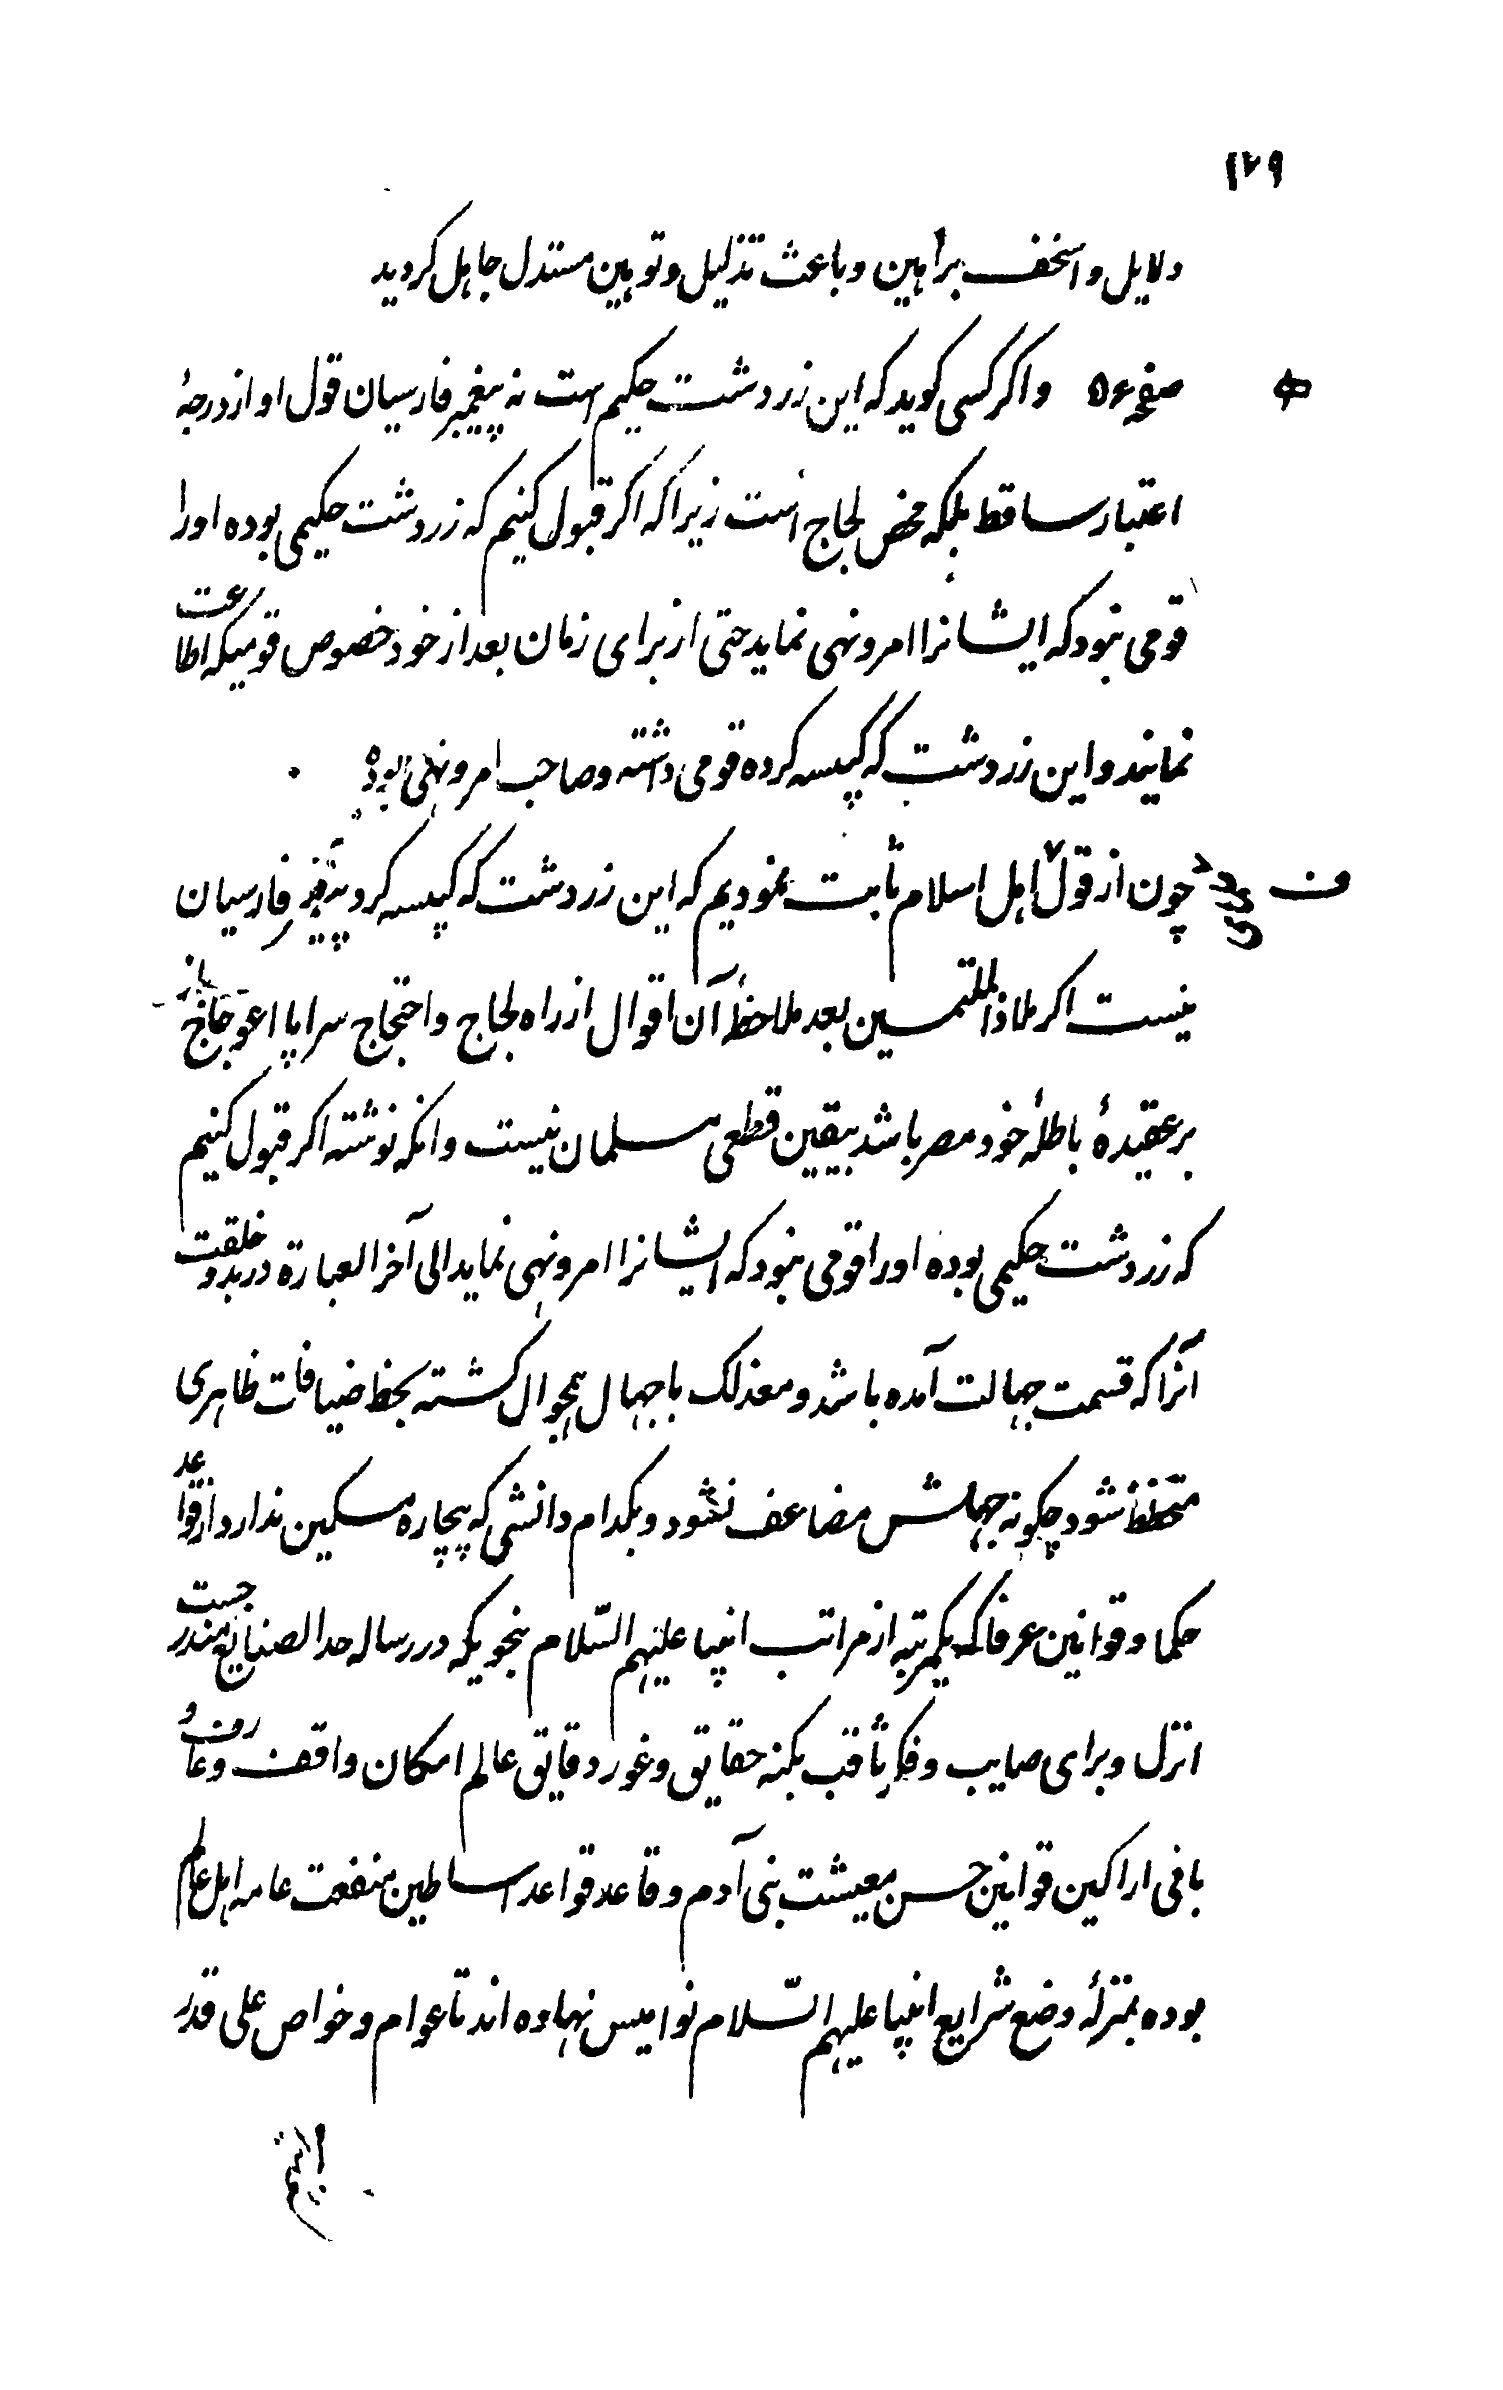 ۱۲۹
دلایل و اسخف براهین و باعث تذلیل و توهین مستدل جاهل کردید
صفحه ۵۶ و اکر کسی کوید که این زردشت حکیم است نه پیغمبر فارسیان قول او از درجهٔ
اعتبار ساقط بلکه محض لجاج است زیرا که اکر قبول کنیم که زردشت حکیمی بوده او را
قومی نبود که ایشانرا امر و نهی نماید حتی از برای زمان بعد از خود خصوص قومیکه اطاعت
نمایند و این زردشت که کپیسه کرده قومی داشته و صاحب امر و نهی بوده
ف چون از قول اهل اسلام ثابت نمودیم که این زردشت که کپیسه کرد پیغمبر فارسیان
نیست اکر ملاذ الملتمسین بعد ملاحظهٔ آن اقوال از راه لجاج و احتجاج سراپا اعوجاج باز
بر عقیدهٔ باطلهٔ خود مصر باشد بیقین قطعی مسلمان نیست و انکه نوشته اکر قبول کنیم
که زردشت حکیمی بوده او را قومی نبود که ایشانرا امر و نهی نماید الی آخر العبارة در بدو خلقت
آنرا که قسمت جهالت آمده باشد و معذلک با جهال همجوال کشته بحظ ضیافات ظاهری
متحفظ شود چکونه جهلش مضاعف نشود و بکدام دانشی که بیچاره مسکین ندارد از قواعد
حکما و قوانین عرفا که یکمرتبه از مراتب انبیا علیهم السّلام بنحویکه در رساله حد الصنایع مندرجست
انزل و برای صایب و فکر ثاقب بکنه حقایق و غور دقایق عالم امکان واقف و عارف و
بافی اراکین قوانین حسن معیشت بنی آدم و قاعد قواعد اساطین منفعت عامه اهل عالم
بوده بمنزلهٔ وضع شرایع انبیا علیهم السّلام نوامیس نهاده اند تا عوام و خواص علی قدر